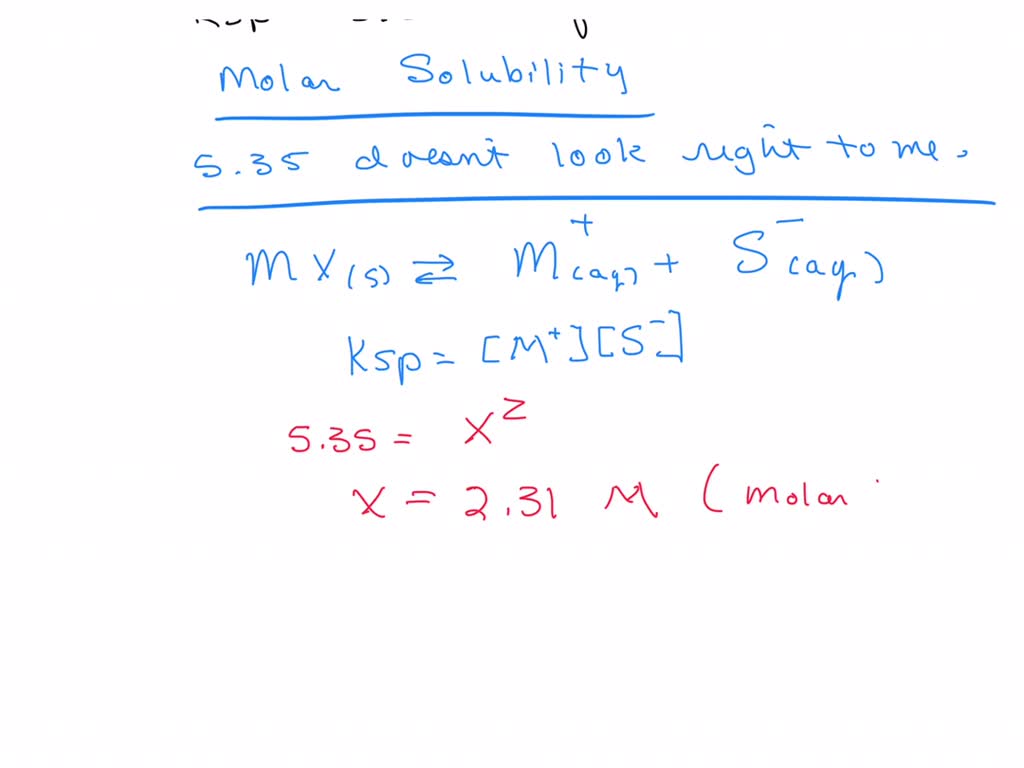 Molar Solubility
5.35 doesn't look right to me.
MX(s) ⇄ M⁺(aq) + S⁻(aq)
Ksp = [M⁺][S⁻]
5.35 = x²
x = 2.31 M (molar